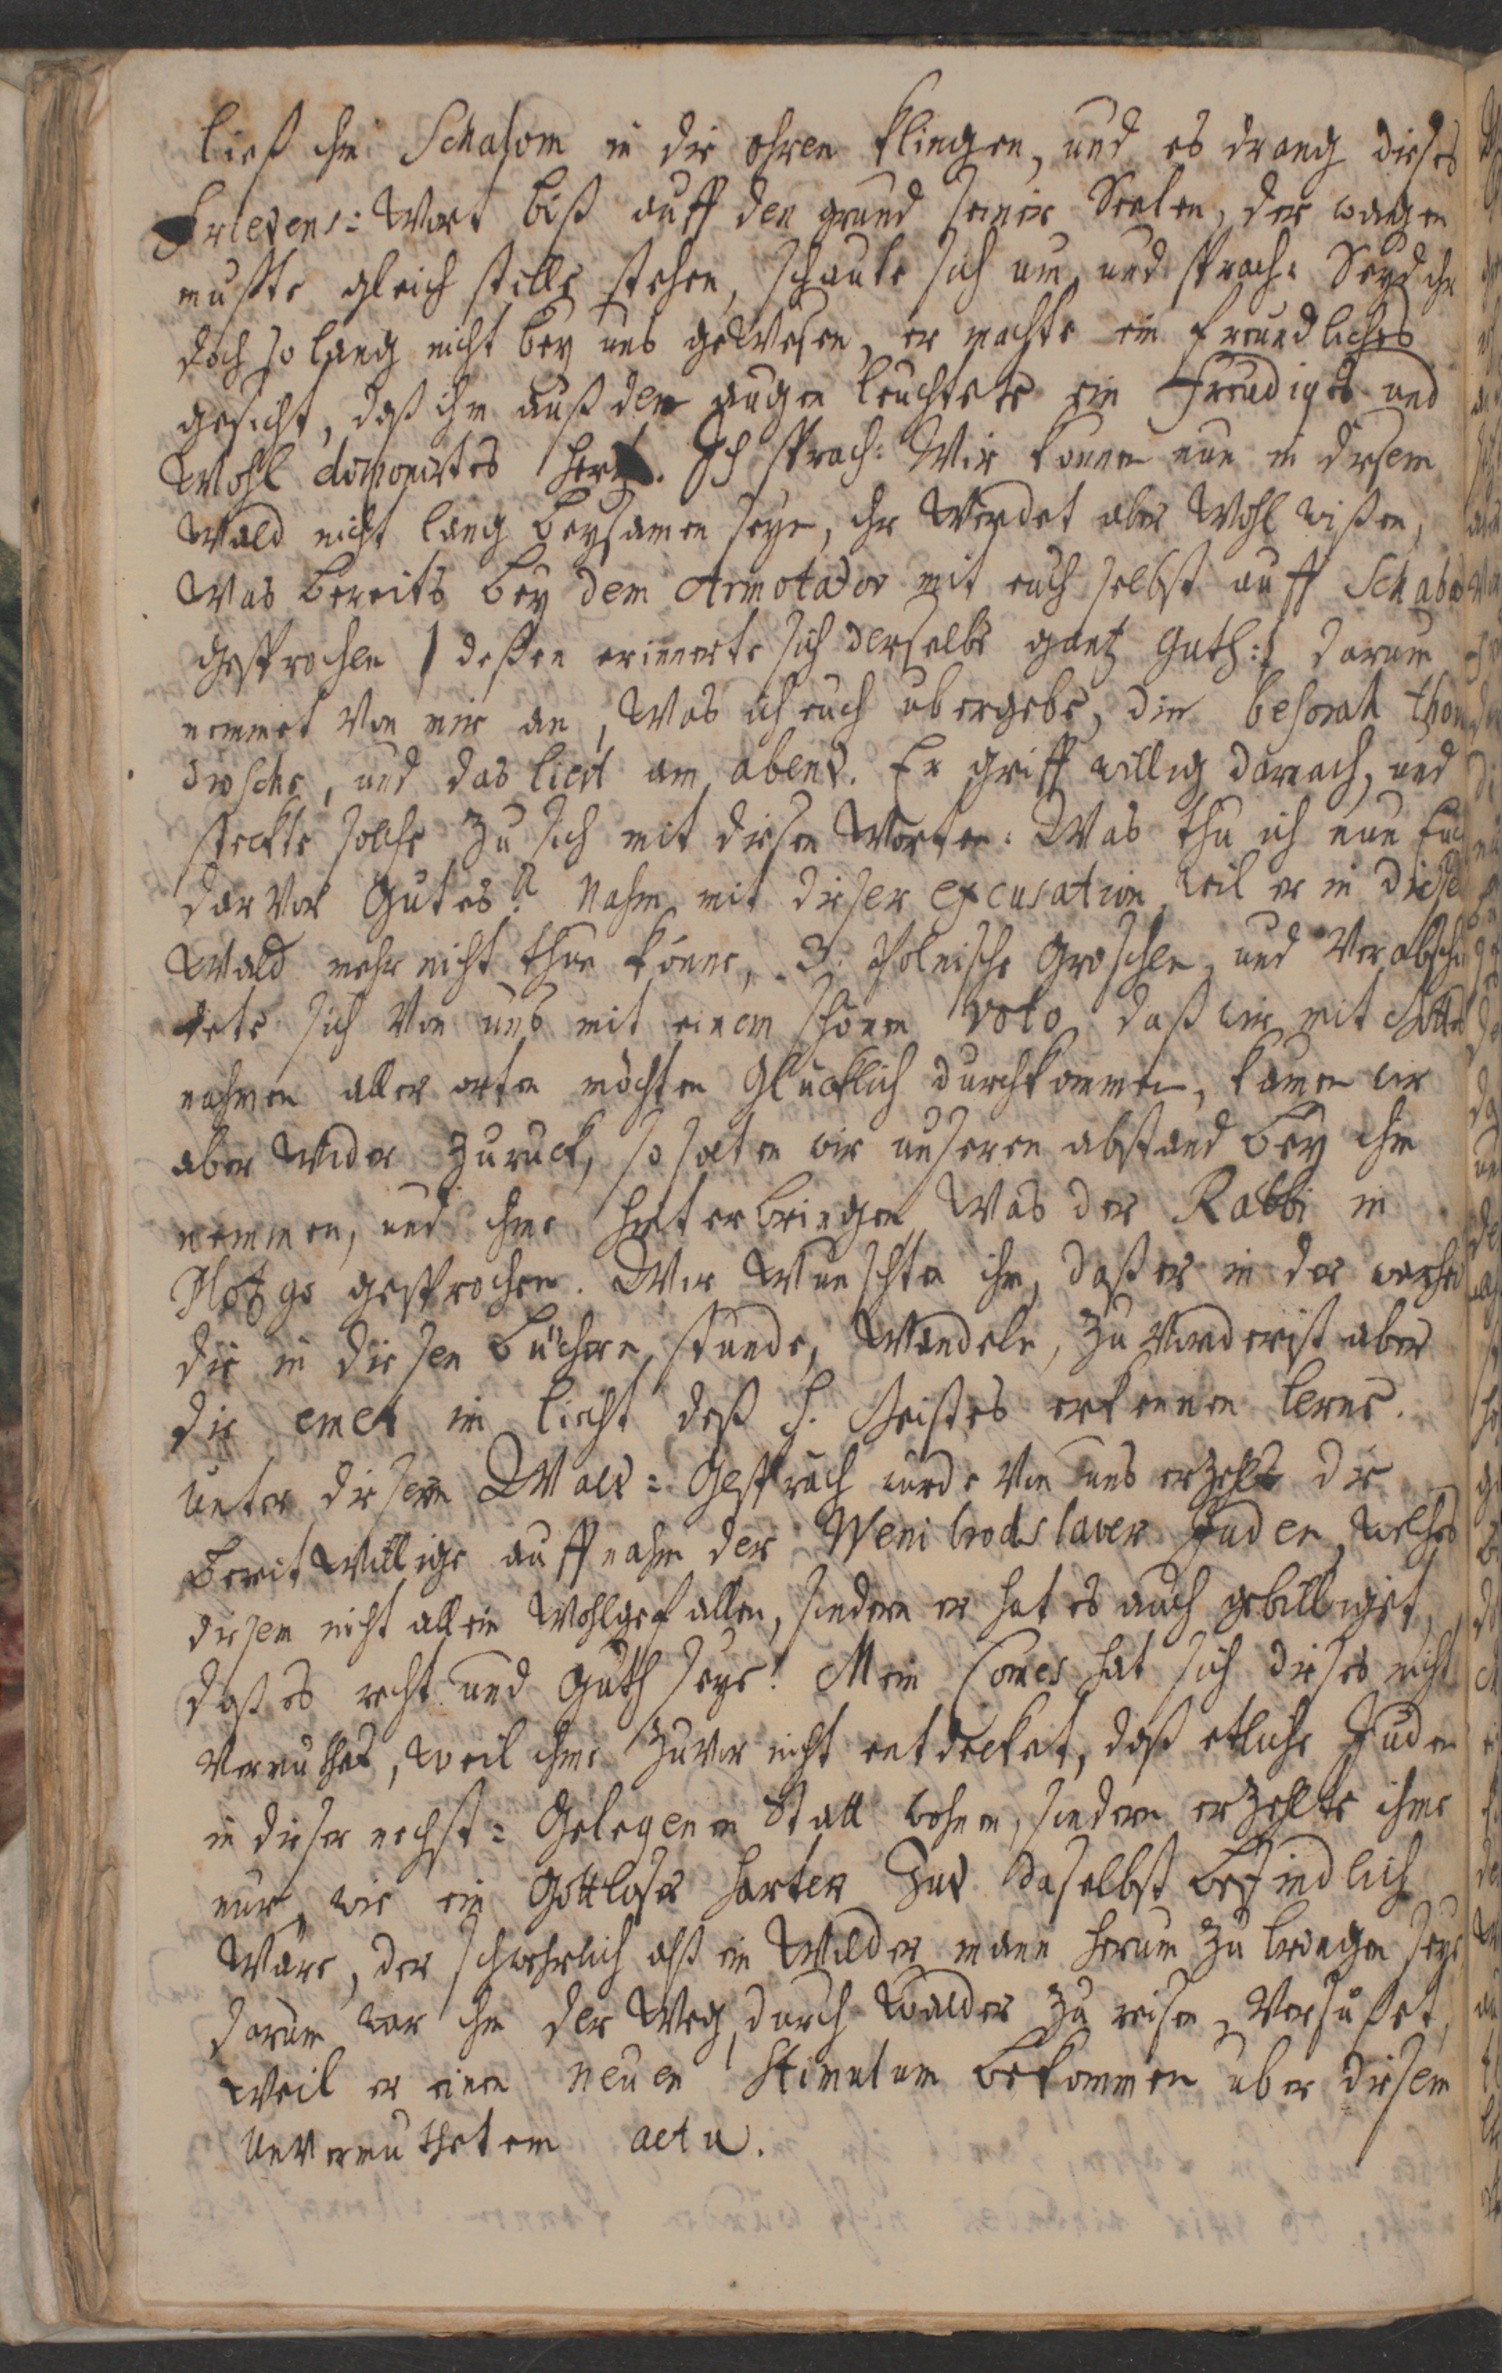 ließ ihm Schalom in die ohren klingen, und es drang dieses
Friedens: Wort biß auff den grund seiner Seelen, der wagen
mußte gleich stille stehen, schaute sich um, und sprach: Seyd ihr
doch so lang nicht bey uns gewesen, er machte ein freundliches
gesicht, daß ihm auß den augen leuchtete ein freudiges und
Wohl disponirtes hertz. Ich sprach: Wir konnen nun in disem
Wald nicht lang beysamen seyn, ihr Werdet aber Wohl wißen,
Was bereits bey dem Armotador mit euch selbst auff Schabas
gesprochen /: deßen erinnerte sich derselbe gantz Guth :/ darum
nemmet von mir an, Was ich euch ubergebe, die besorah
und das licht am abend. Er griff willig darnach, und
steckte solche zu sich mit diesen Worten: Was thu ich nun Euch
darvor Gutes? Nahm mit dieser excusation, weil er in diesem
Wald mehr nicht thun könne, 3. Polnische Groschen, und Verabschi
dete sich Von uns mit einem schönen voto, daß wir mit
nahmen aller orten möchten Glücklich durchkommen, kamen wir
aber Wider zuruck, so solten wir unseren abstand bey ihm
nemmen, und ihme hinterbringen, Was der Rabbi in
gesprochen. Wir Wunschten ihm, daß er in der warheit
die in diesen Büchern stunde, Wandeln, zu vorderist aber
die emet im licht deß h. Geistes erkennen lerne.
Unter diesem Wald: Gespräch wurde Von uns erzehlt die
bereitwillige auffnahm der Juden, welches
diesem nicht allein Wohlgefallen, sondern er hat es auch gebilliget,
daß es recht und Guth seye! Mein Comes hat sich dieses nicht
Vermuthet, weil ihme zuvor nicht entdecket, daß etliche Juden
in dieser nechst: Gelegenen Statt wohnen, sondern erzehlte ihme
nur, wie ein Gottloser harter Jud daselbst befindlich
Wäre, der schwehrlich alß ein Wilder mann herum zu bringen seye
darum war ihm der Weg, durch Wälder zu reisen, versüßet,
Weil er einen neuen Stimulum bekommen uber diesem
Unvermuthetem actu.